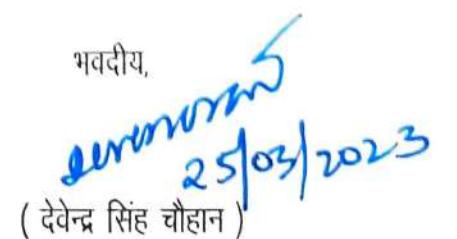 भवदीय,
25/03/2023
( देवेन्द्र सिंह चौहान )